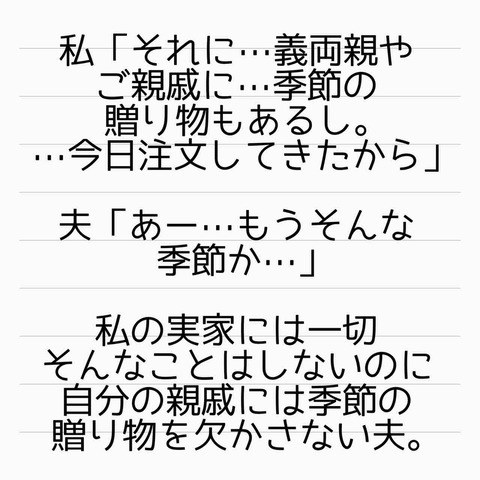 私「それに…義両親や
ご親戚に…季節の
贈り物もあるし。
…今日注文してきたから」
夫「あー…もうそんな
季節か…」
私の実家には一切
そんなことはしないのに
自分の親戚には季節の
贈り物を欠かさない夫。